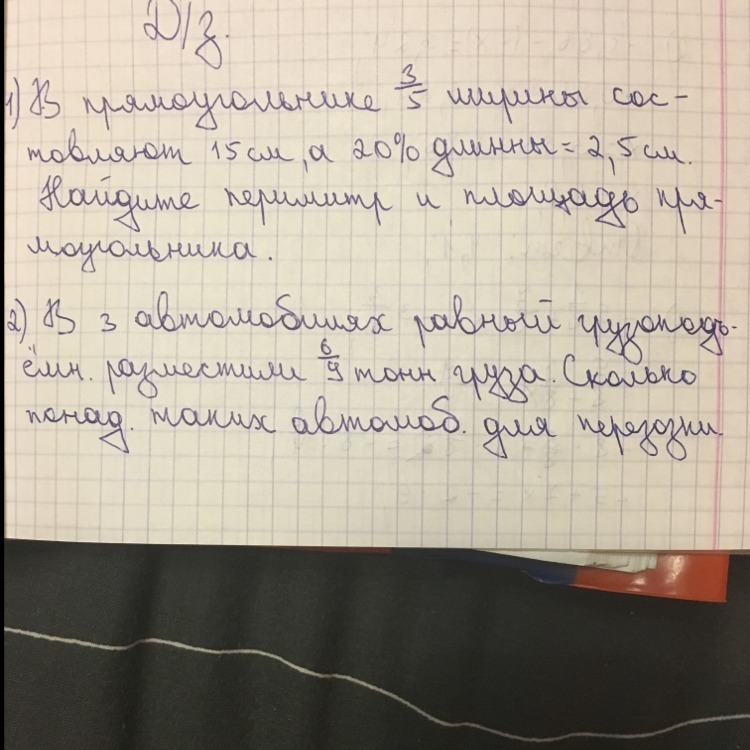 Д/з.
1) В прямоугольнике 3/5 ширины сос-
товляют 15 см, а 20% длинны = 2,5 см.
Найдите периметр и площадь пря-
моугольника.
2) В 3 автомобилях равный грузоподъ-
ёмн. разместили 6/9 тонн груза. Сколько
понад. таких автомоб. для перезозки.